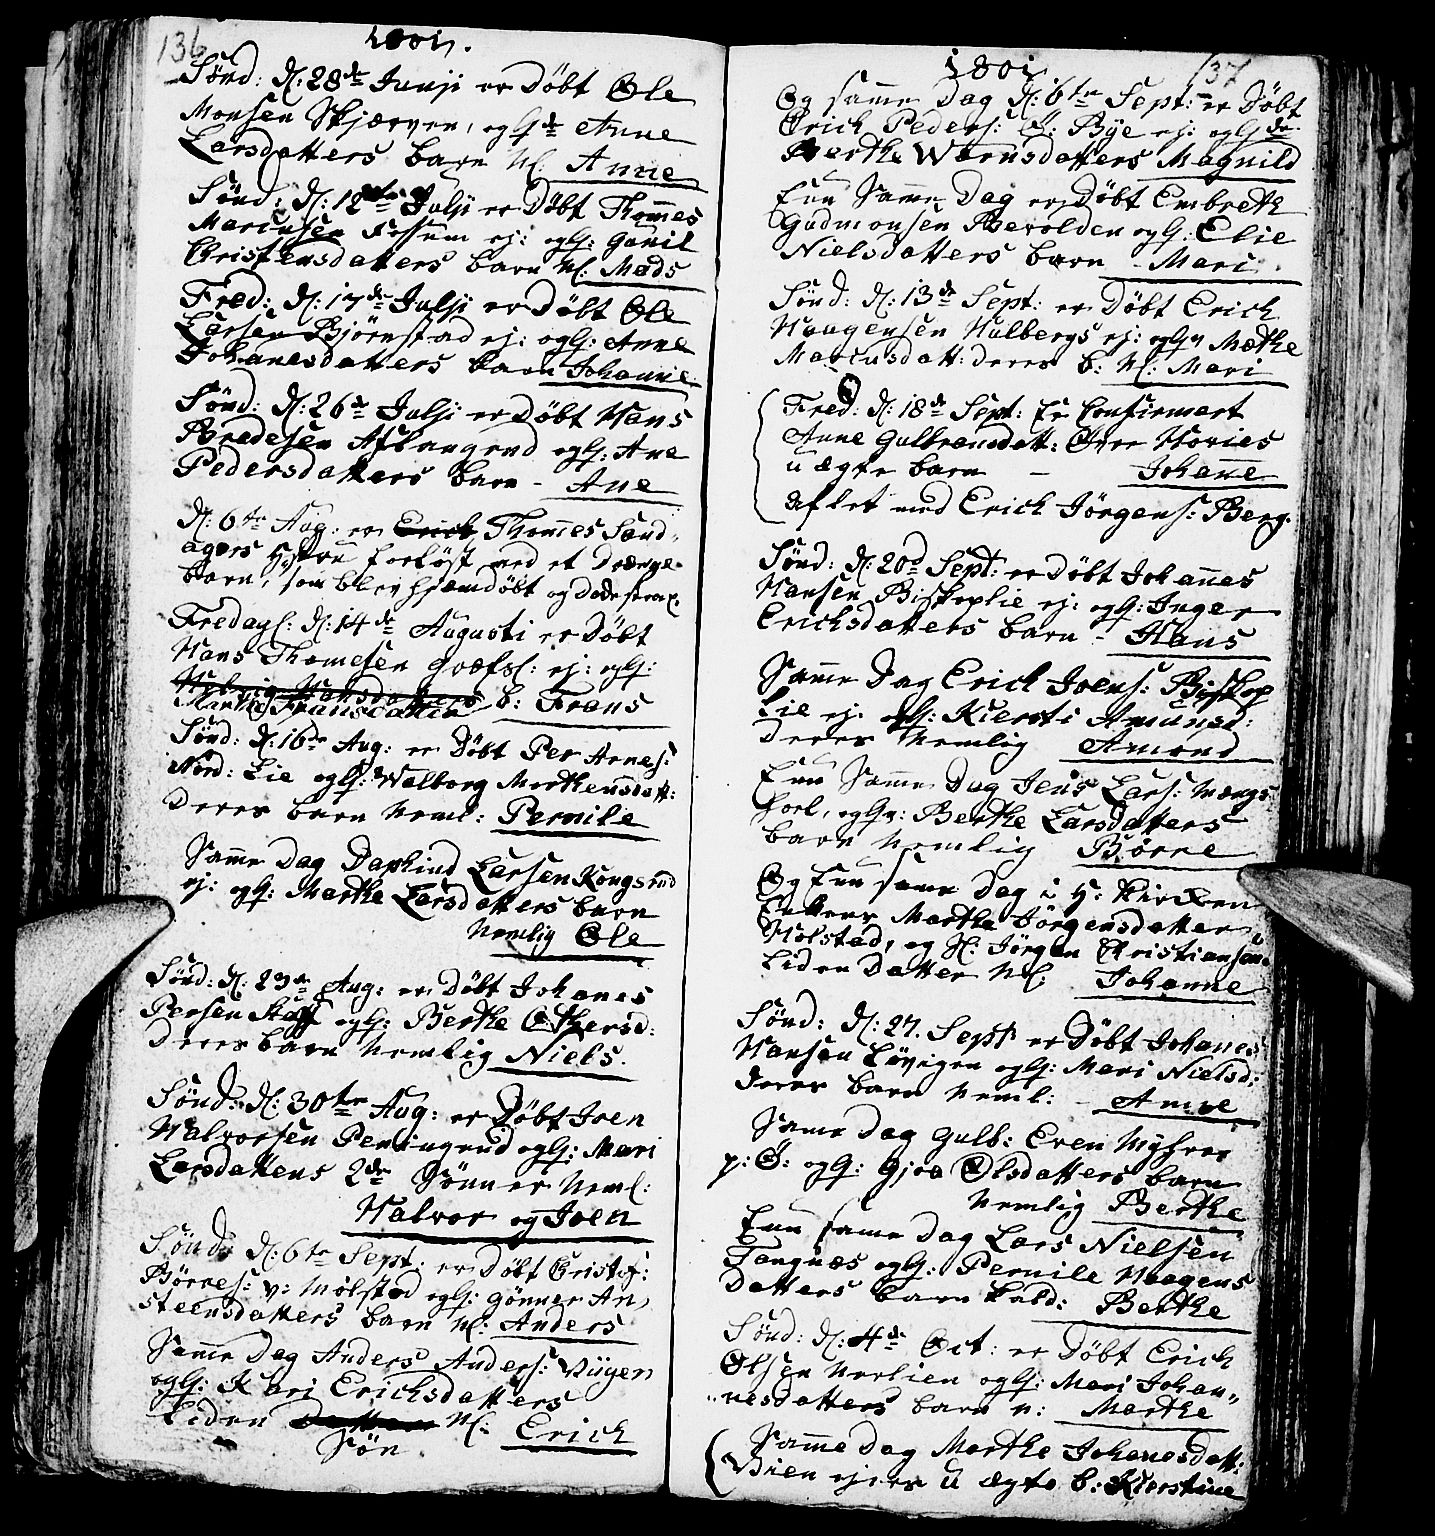 136
1801.
Sønd: d: 28de Junji er Døbt Ole
Monsen Skjærven, og G de Anne
Larsdatters barn N. Anne
Sønd: d: 12te Julji er Døbt Thommes
Marcusen Fossum ej: og G: Gunil
Christensdatters barn N: Mads
Fred: d: 17de Julji er Døbt Ole
Larsen Bjørnstad ej: og G: Anne
Johanesdatters barn Johanne
Sønd: d: 26de Julji er Døbt Hans
Bredesen Aslangrud og G: Ane
Pedersdatters barn - Ane
d: 6te Aug: er Erich Thommes Sand-
agers Hustru forløst med et Drænge-
barn, som blev hjemdøbt og Døde strax.
Fredag: d: 14de Augusti er Døbt
Hans Thomesen Græfsl: ej: og G:
Marthe Fransdatters b: Frans
Sønd: d: 16de Aug: er Døbt Per Arnes:
Nord: Lie og G: Walborg Morthensdatt:
Deres barn Neml: Pernile
Samme Dag Daphind Larsen Kongsrud
ej: og G: Marthe Larsdatters barn
Nemlig Ole
Sønd: d: 23de Aug: er Døbt Johanes
Persen og G: Berthe
Deres barn Nemlig Niels.
Sønd: d: 30te Aug: er Døbt Joen
Halvorsen Penningrud og G: Mari
Larsdatters 2de Sønner Neml:
Halvor og Joen
Sønd: d: 6te Sept: er Døbt Cristof:
Børres: v: Molstad og G: Gønner An-
steensdatters barn N: Anders
Samme Dag Anders Anders: Viigen
og G: Kari Erichsdatters
Liden Datter N: Erich
Søn
137
1801
Og samme Dag d: 6te Sept: er Døbt
Erich Peders: Ø: Bye ej: og G de
Berthe Warnsdatters Magnild
Enn Samme Dag er Døbt Embreth
Gudmonsen Bevolden og G: Elie
Nielsdatters barn - Mari
Sønd: d: 13de Sept: er Døbt Erich
Haagensen Hulbergs ej: og G: Mæthe
Marcusdatt: deres b: N: Mari
Fred: d: 18de Sept: er Confirmert
Anne Gulbransdatt: Øvre Hovies
u ægte barn - Johane
aflet med Erich Jørgens: Berg.
Sønd: d: 20d Sept: er Døbt Johannes
Hansen Biskoplie ej: og G: Inger
Erichsdatters barn - Hans
Samme Dag Erich Joens: Biskop
Lie ej: og G: Kiersti Amunsd:
Deres Nemlig Amond
Enn Samme Dag Jens Lars: Mængs
hoel, og G: Berthe Larsdatters
barn Nemlig Børre
Og Enn samme Dag i H: Kirken
Marthe Jørgensdatter
Holstad, og H: Jørgen Christiansøns
Liden Datter N: Johanne
Sønd: d: 27. Sept er Døbt Johanes
Hansen Løvigen og G: Mari Nielsd:
Deres barn Neml: - Anne
Samme Dag Gulb: Even Myhres
p: Ø: og G: Gjøa Olsdatters barn
Nemlig Berthe
Enn samme Dag Lars Nielsen
Tangnæs og G: Pernile Haagens
Datters barn kald: Berthe
Sønd: d: 4de Oct: er Døbt Erich
Olsen Norlien og G: Mari Johan-
nesdatters barn n: Marthe
Samme Dag Marthe Johanesdatt:
Vien ejers U ægte b: Kierstine